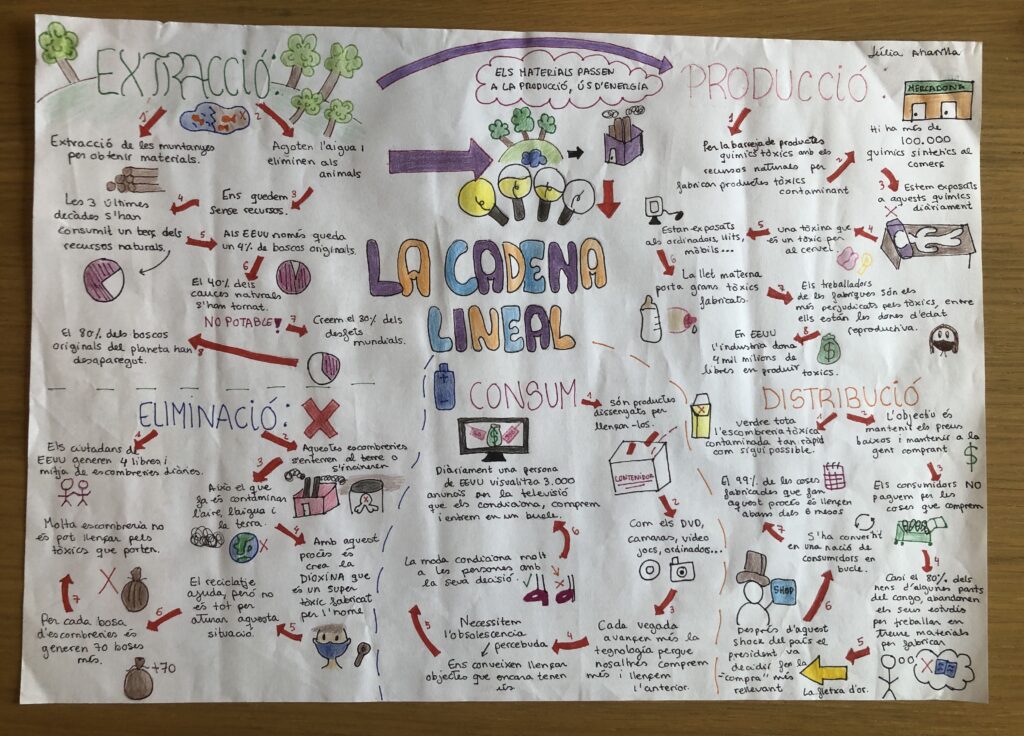 Júlia
EXTRACCIÓ:
1
2
Extracció de les muntanyes
per obtenir materials.
Agoten l'aigua i
eliminen als
animals
3
Ens quedem
sense recursos.
4
Les 3 últimes
dècades s'han
consumit un terç dels
recursos naturals.
5
Als EEUU només queda
un 4% de boscos originals.
6
El 40% dels
cauces naturals
s'han tornat
NO POTABLE!
7
Creem el 30% dels
desfets
mundials.
8
El 80% dels boscos
originals del planeta han
desaparegut.
ELS MATERIALS PASSEN
A LA PRODUCCIÓ, ÚS D'ENERGIA
LA CADENA
LINEAL
PRODUCCIÓ
MERCADONA
1
Per la barreja de productes
químics tòxics amb els
recursos naturals per
fabrican productes tòxics
contaminant
2
Hi ha més de
100.000
químics sintètics al
comerç
3
Estem exposats
a aquests químics
diàriament
4
una tòxina que
és un tòxic per
al cervell.
5
Estan exposats
als ordinadors, llits,
mòbils...
6
La llet materna
porta grans tòxics
fabricats.
7
Els treballadors
de les fàbriques són els
més perjudicats pels tòxics, entre
ells están les dones d'edat
reproductiva.
8
En EEUU
l'industria dona
4 mil milions de
llibres en produir
tòxics.
DISTRIBUCIÓ
1
verdre tota
l'escombreria tòxica
contaminada tan ràpid
com sigui possible.
2
L'objectiu és
mantenir els preus
baixos i mantenir a la
gent comprant
$
3
Els consumidors NO
paguem per les
coses que comprem
4
Casi el 80% dels
nens d'algunes parts
del congo, abandonen
els seus estudis
per treballar en
treure materials
per fabricar
5
La fletxa d'or.
Després d'aquest
shock del país el
president va
decidir fer la
"compra" més
rellevant
SHOP
6
S'ha convertit
en una nació de
consumidors en
bucle.
7
El 99% de les coses
fabricades que fan
aquest procés es llençen
abans dels 6 mesos
CONSUM
1
Són productes
dissenyats per
llençan-los.
CONTENIDOR
2
Com els DVD,
camaras, video
jocs, ordinados...
3
Cada vegada
avançen més la
tecnología perque
nosaltres comprem
més i llençem
l'anterior.
4
Necessitem
l'obsolescencia
percebuda
Ens conveixen llençar
objectes que encara tenen
ús.
5
La moda condiciona molt
a les persones amb
la seva decisió.
6
Diàriament una persona
de EEUU visualitza 3.000
anuncis per la televisió
que els condiciona, comprem
i entrem en un bucle.
ELIMINACIÓ:
1
Els ciutadans de
EEUU generen 4 llibres i
mitja de escombreries diàries.
2
Aquestes escombreries
s'enterren al terre o
s'incineren
3
Això el que
fa és contaminar
l'aire, l'aigua i
la terra.
4
Amb aquest
procés es
crea la
DIOXINA que
és un super
tòxic fabricat
per l'home
5
El reciclatje
ajuda, però no
és tot per
aturar aquesta
situació.
6
Per cada bossa
d'escombreries es
generen 70 bosses
més.
+70
7
Molta escombreria no
es pot llençar pels
tòxics que porten.